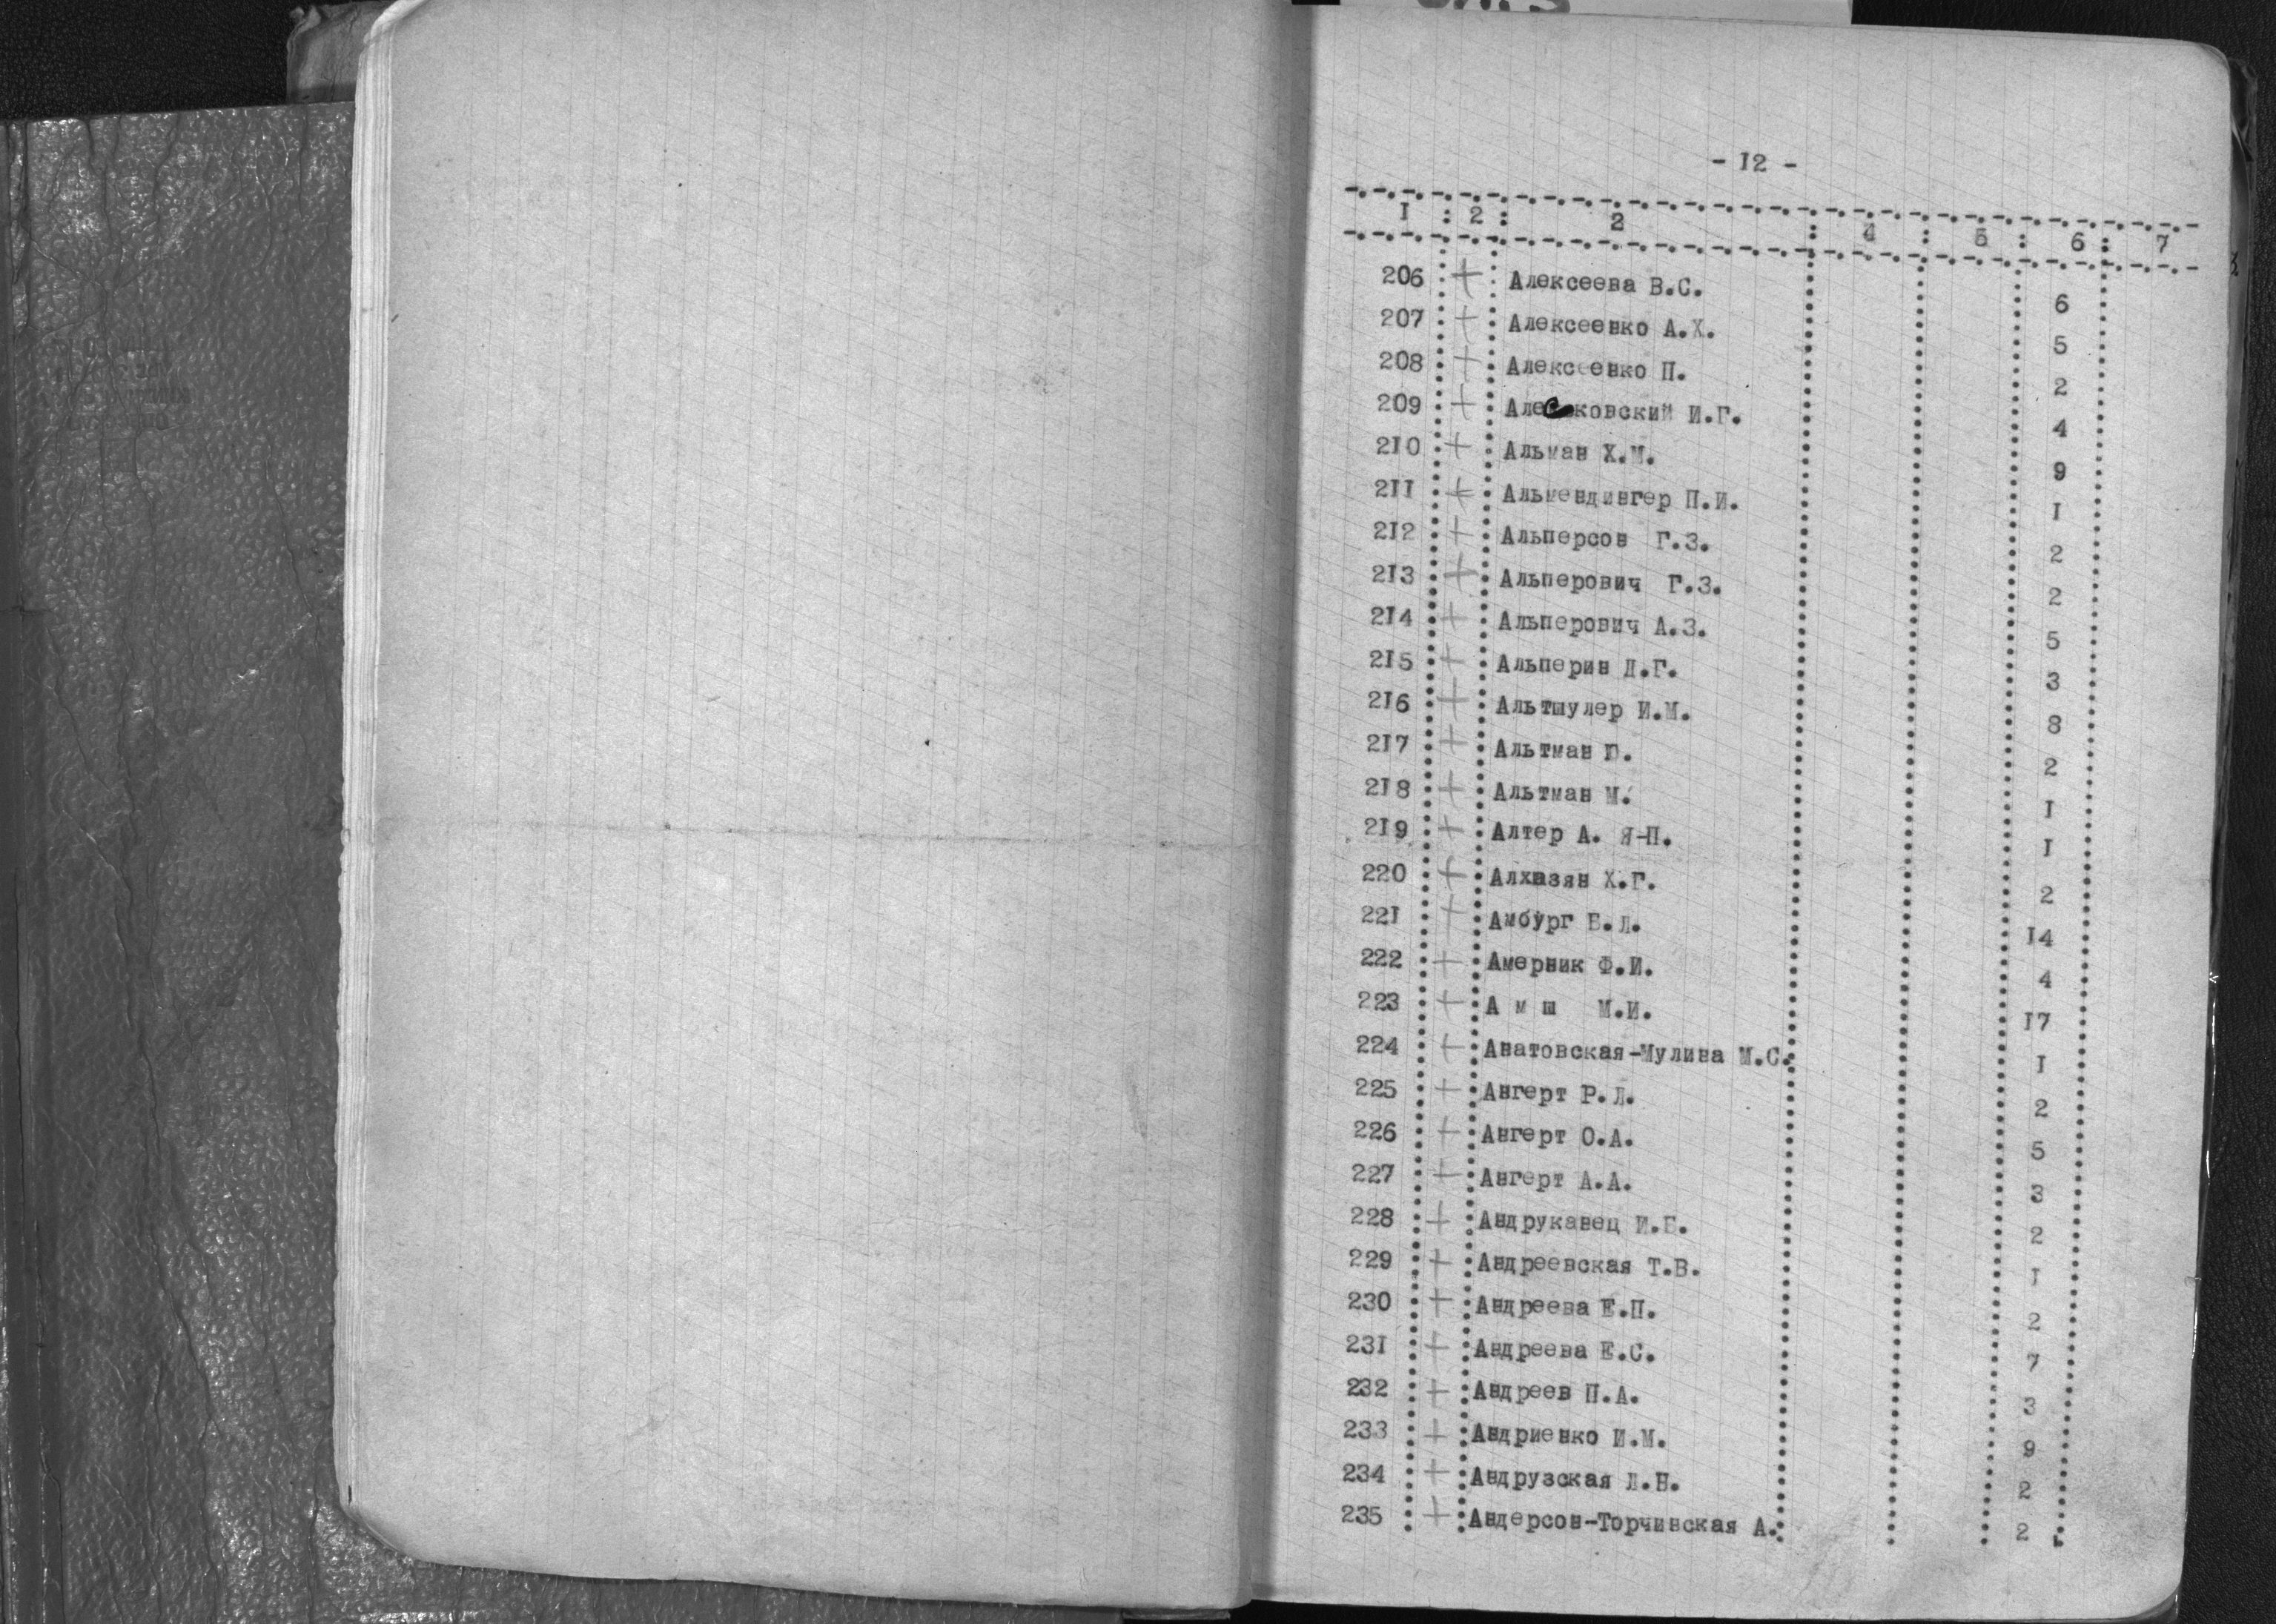 - I2 -
I : 2 : 2 : 4 : 5 : 6 : 7
206 + Алексеева В.С. 6
207 + Алексеенко А.Х. 5
208 + Алексеенко П. 2
209 + Алесковский И.Г. 4
2I0 + Альман Х.М. 9
2II + Альмендингер П.И. I
2I2 + Альперсон Г.З. 2
2I3 + Альперович Г.З. 2
2I4 + Альперович А.З. 5
2I5 + Альперин Д.Г. 3
2I6 + Альтшулер И.М. 8
2I7 + Альтман Ю. 2
2I8 + Альтман М. I
2I9 + Алтер А. Я-П. I
220 + Алхазян Х.Г. 2
22I + Амбург Б.Л. I4
222 + Амерник Ф.И. 4
223 + А м ш М.И. I7
224 + Анатовская-Мулина М.С. I
225 + Ангерт Р.Л. 2
226 + Ангерт О.А. 5
227 + Ангерт А.А. 3
228 + Андруканец И.Б. 2
229 + Андреевская Т.В. I
230 + Андреева Е.П. 2
23I + Андреева Е.С. 7
232 + Андреев П.А. 3
233 + Андриенко И.М. 9
234 + Андрузская Л.Н. 2
235 + Андерсон-Торчинская А. 2